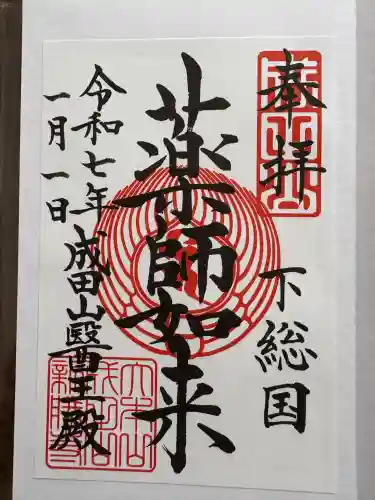 奉拝
下総国
薬師如来
令和七年
一月一日
成田山醫王殿